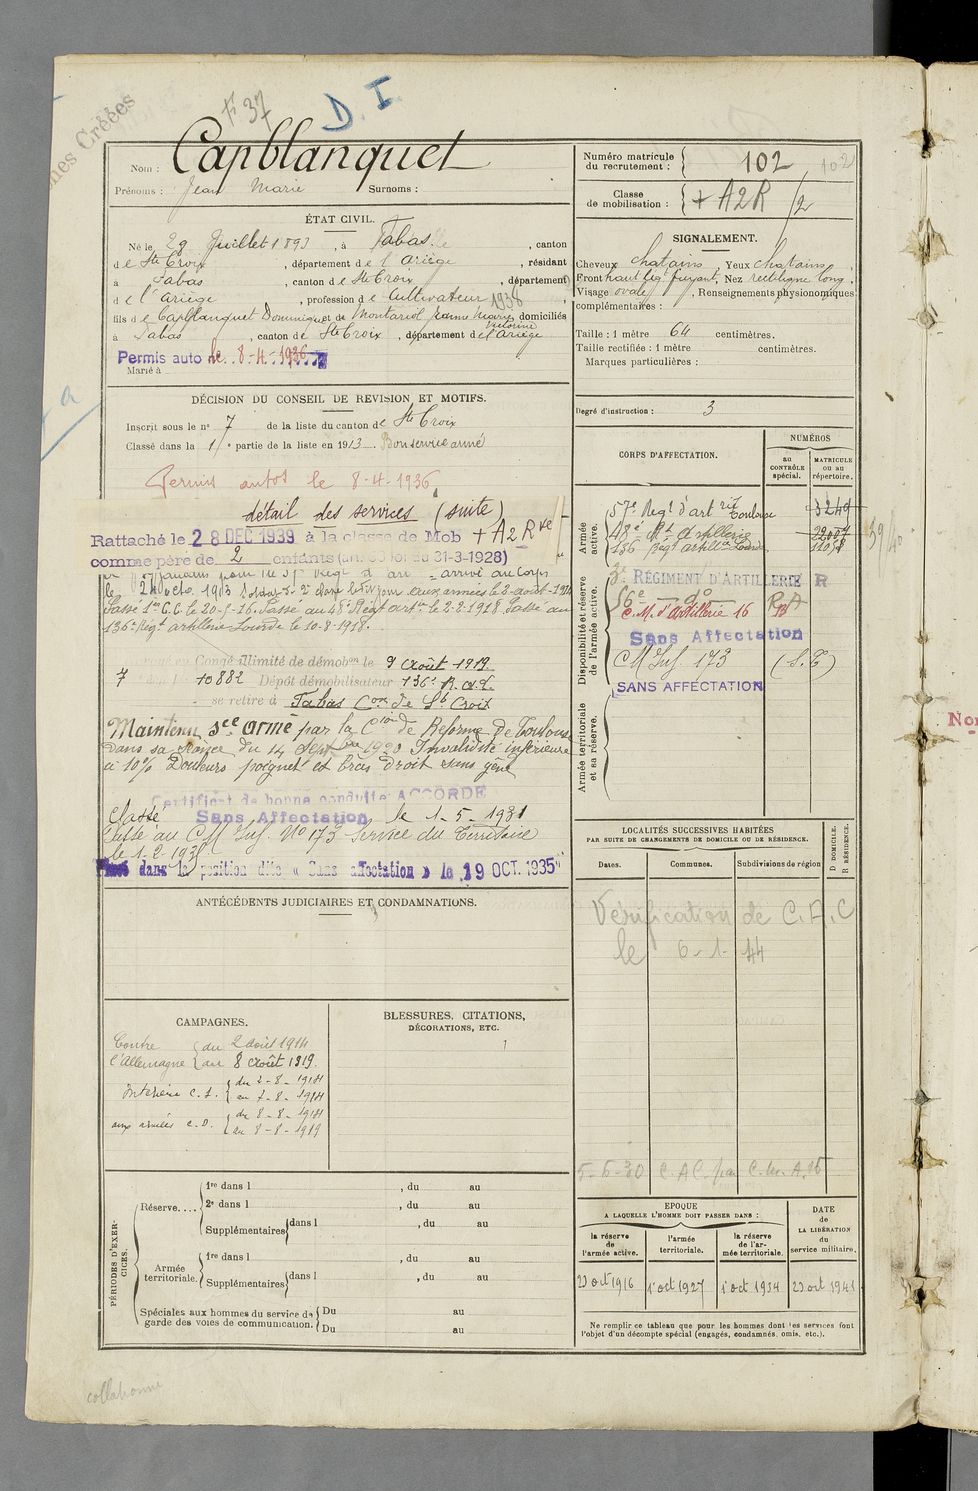 nes Créées
F 37
D. I.
Nom : Capblanquet
Prénoms : Jean Marie Surnoms :
Numéro matricule du recrutement : 102 102
Classe de mobilisation : + A2R /2
ÉTAT CIVIL.
Né le 29 Juillet 1893, à Tabas, canton
de Ste Croix, département de l'Ariège, résidant
à Tabas, canton de Ste Croix, département
de l'Ariège, profession de Cultivateur 1938
fils de Capblanquet Dominique et de Montariol Jeanne Marie Victorine domiciliés
à Tabas, canton de Ste Croix, département de l'Ariège
Permis auto le 8-4-1936
Marié à
SIGNALEMENT.
Cheveux chatains, Yeux chatains,
Front haut lég^t fuyant, Nez rectiligne long,
Visage ovale, Renseignements physionomiques
complémentaires :
Taille : 1 mètre 64 centimètres.
Taille rectifiée : 1 mètre centimètres.
Marques particulières :
Degré d'instruction : 3
DÉCISION DU CONSEIL DE REVISION ET MOTIFS.
Inscrit sous le n° 7 de la liste du canton de Ste Croix
Classé dans la 1re partie de la liste en 1913. Bon service armé
Permis autos le 8-4-1936
détail des services (suite)
Rattaché le 28 DEC 1939 à la classe de Mob + A2 Rve
comme père de 2 enfants (art. 58 loi du 31-3-1928)
arrivé au Corps
le
Passé 1er C.C. le 20-1-16. Passé au 48e Régt art^ie le 2-2-1918. Passé au
136e Régt artillerie Lourde le 10-8-1918.
Congé illimité de démob^on le 9 Août 1919
7 10882 Dépôt démobilisateur 136e R.A.L.
se retire à Tabas Con de Ste Croix
Maintenu sce armé par la Cion de Réforme de Toulouse
dans sa séance du 14 Sept 1920 Invalidité inférieure
à 10% Douleurs poignet et bras droit sans gêne
Certificat de bonne conduite ACCORDÉ
Classé Sans Affectation le 1-5-1931
Passé au CM Inf. No 173 Service du Territoire
le 1-2-193
Placé dans la position dite « Sans affectation » le 19 OCT. 1935
CORPS D'AFFECTATION.
NUMÉROS
au CONTRÔLE spécial.
MATRICULE ou au répertoire.
Armée active.
57e Régt d'art^rie Toulouse 3249
48e Rt d'Artillerie 22007
136 Régt artill^ie Lourde
Disponibilité et réserve de l'armée active.
3e RÉGIMENT D'ARTILLERIE R
56e do R.A
C.M. d'Artillerie 16
Sans Affectation
CM Inf. 173 (S.T)
SANS AFFECTATION
Armée territoriale et sa réserve.
LOCALITÉS SUCCESSIVES HABITÉES
PAR SUITE DE CHANGEMENTS DE DOMICILE OU DE RÉSIDENCE.
Dates. Communes. Subdivisions de région
D DOMICILE.
R RÉSIDENCE.
Vérification de C.A.C
le 6-1-44
5-6-30 C.A.C. par C.M. A.16
ANTÉCÉDENTS JUDICIAIRES ET CONDAMNATIONS.
CAMPAGNES.
Contre l'Allemagne du 2 août 1914
au 8 Août 1919.
Intérieur C.S. du 2-8-1914
au 7-8-1914
aux armées C.D. du 8-8-1914
au 8-8-1919
BLESSURES, CITATIONS,
DÉCORATIONS, ETC.
PÉRIODES D'EXERCICES.
Réserve....
1re dans l , du au
2e dans l , du au
Supplémentaires dans l , du au
Armée territoriale.
1re dans l , du au
Supplémentaires dans l , du au
Spéciales aux hommes du service de garde des voies de communication.
Du au
Du au
EPOQUE
A LAQUELLE L'HOMME DOIT PASSER DANS :
la réserve de l'armée active.
l'armée territoriale.
la réserve de l'armée territoriale.
DATE de LA LIBÉRATION du service militaire.
20 oct 1916 1 oct 1927 1 oct 1934 20 oct 1941
Ne remplir ce tableau que pour les hommes dont les services font
l'objet d'un décompte spécial (engagés, condamnés, omis, etc.).
collationné